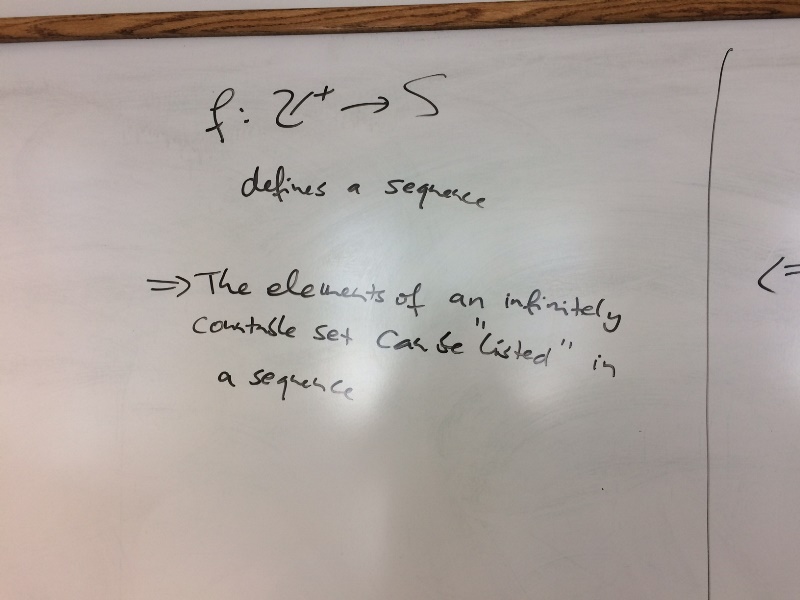 f: ℤ⁺ → S
defines a sequence
⇒ The elements of an infinitely
countable set can be "listed" in
a sequence
<=